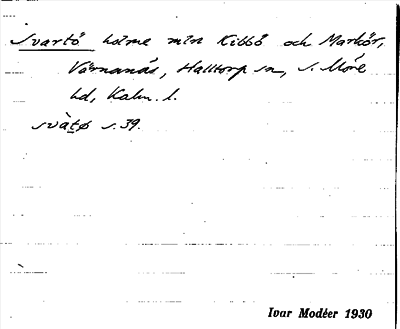 Svartö holme mln Kibbö och Markör,
Värnanäs, Halltorp sn, S. Möre
hd, Kalm. l.
svàtø s. 39.
Ivar Modéer 1930